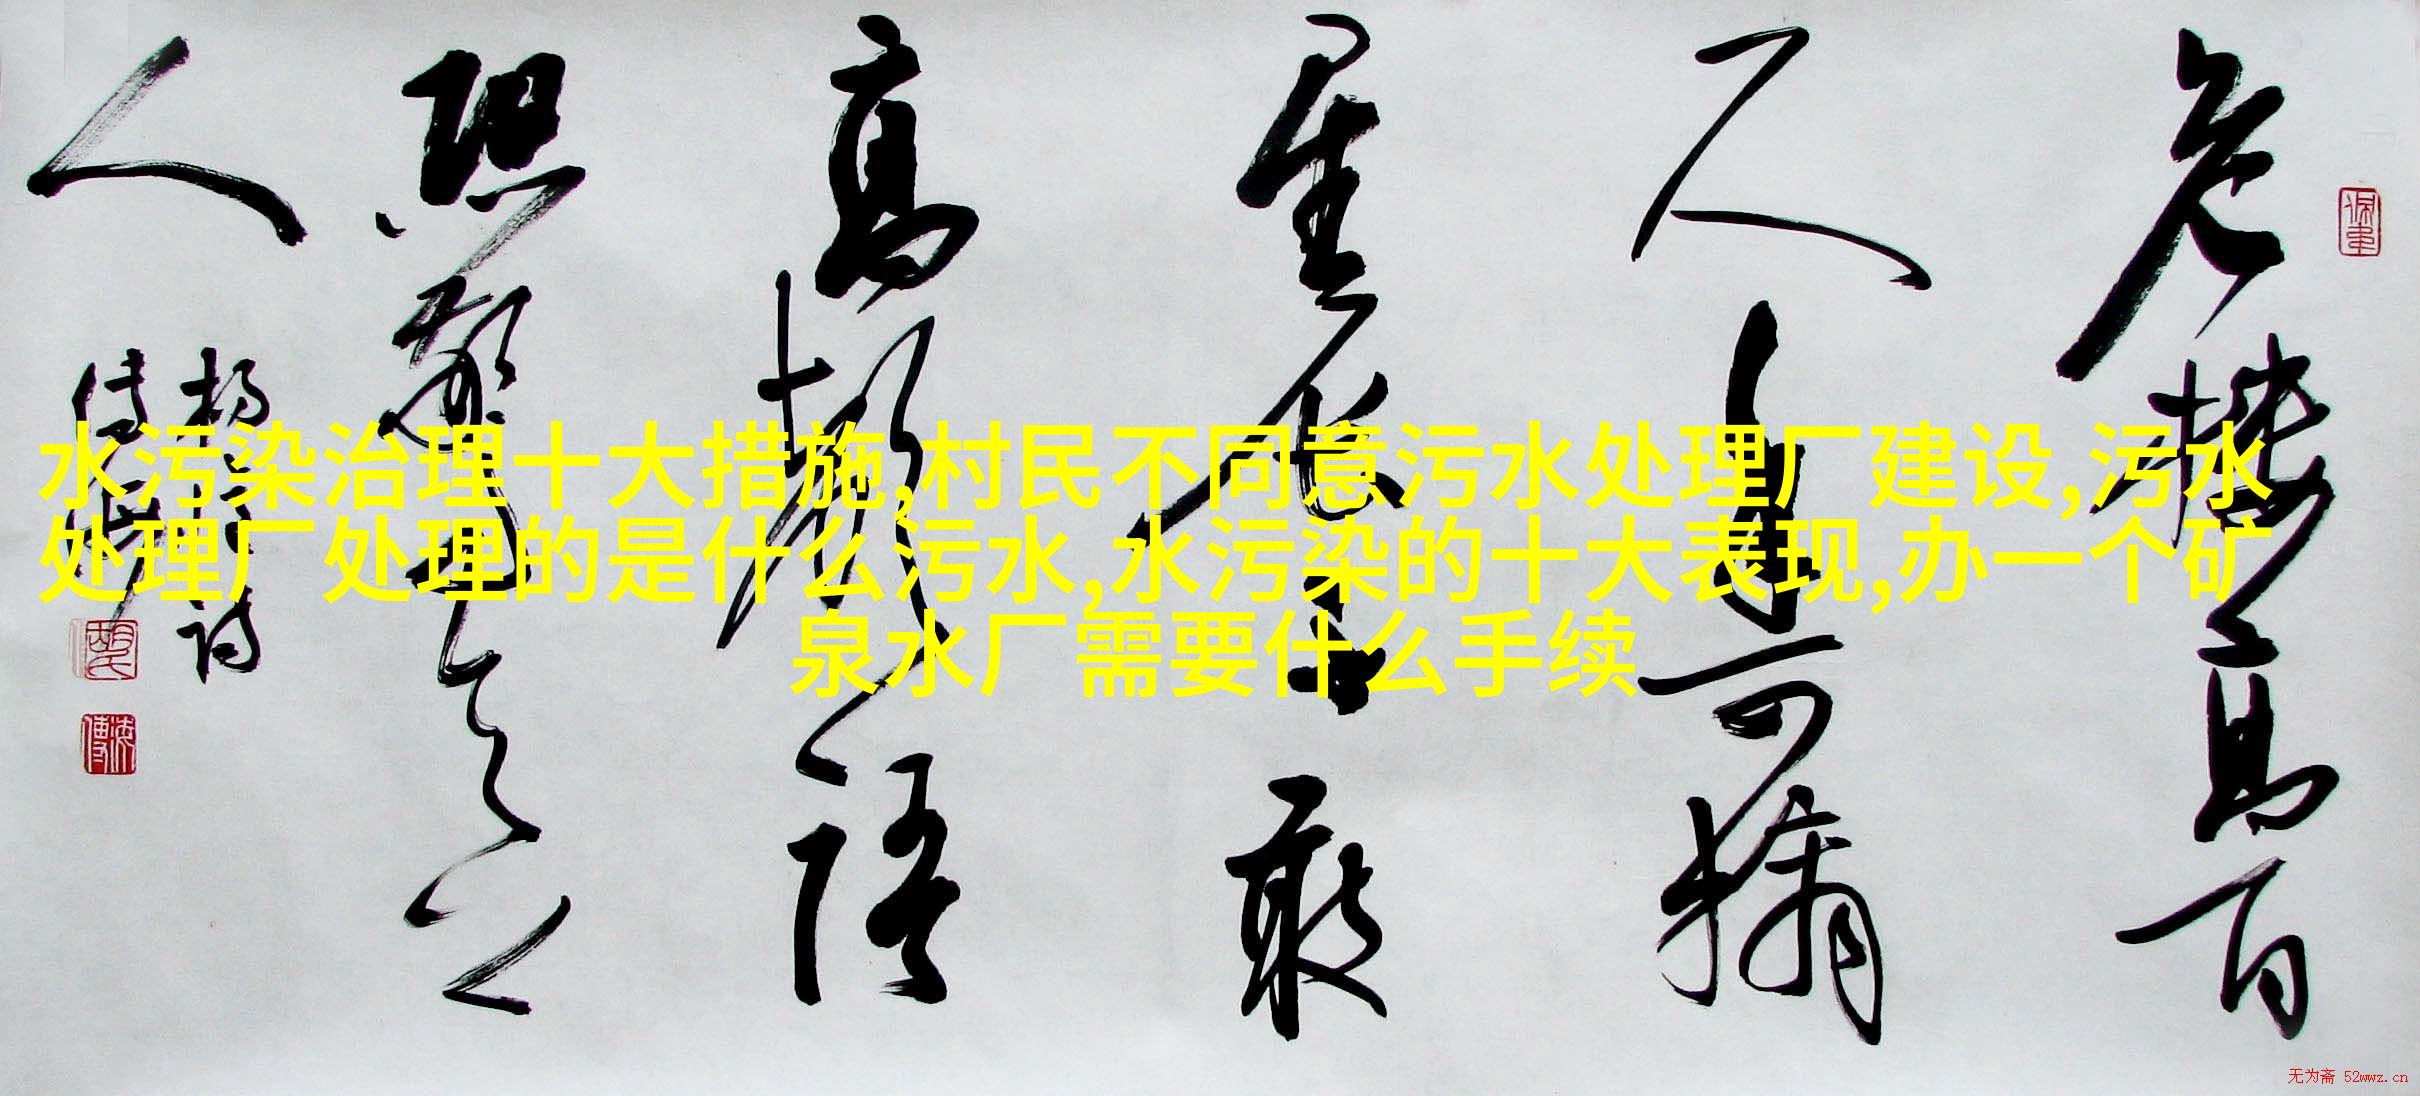 水污染治理十大措施,村民不同意污水处理厂建设,污水
处理厂处理的是什么污水,水污染的十大表现,办一个矿
泉水厂需要什么手续
危楼高百
尺手可摘
星辰不敢
高声语
恐惊天上
人
无为斋 52wwz.cn